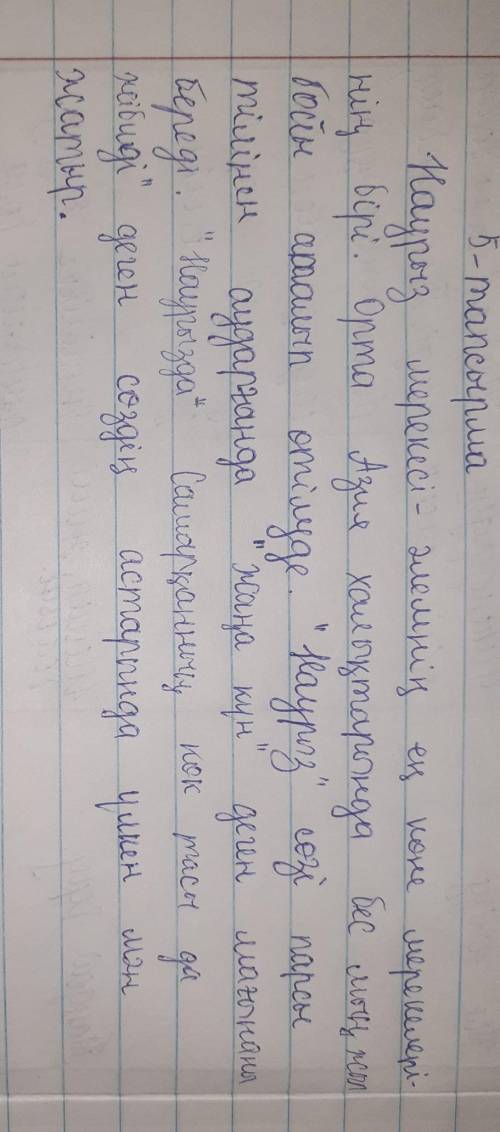 5-тапсырма
Наурыз мерекесі - әлемнің ең көне мерекелері-
нің бірі. Орта Азия халықтарында бес мың жыл
бойы аталып өтілуде. "Наурыз" сөзі парсы
тілінен аударғанда "жаңа күн" деген мағынаны
береді. "Наурызда" Самарқанның көк тасы да
жібиді" деген сөздің астарында үлкен мән
жатыр.